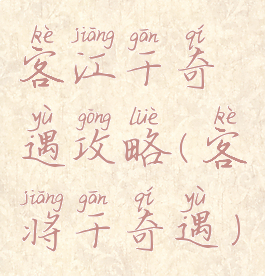 kè jiāng gān qí
客江干奇
yù gōng lüè kè
遇攻略(客
jiāng gān qí yù
将干奇遇)